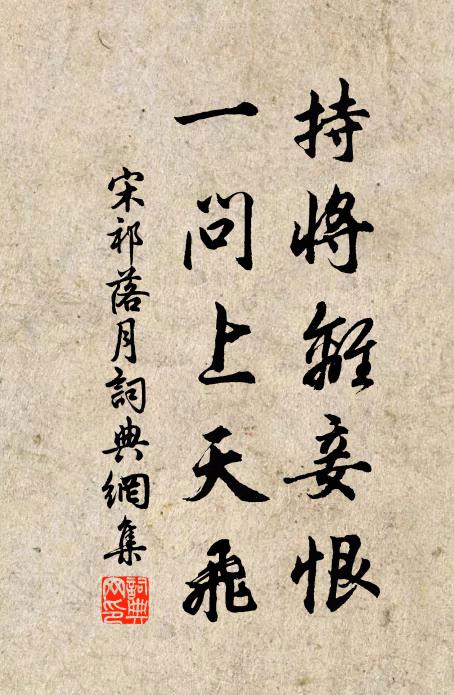 持將離妾恨
一問上天飛
宋祁落月詞典網集
詞典網印